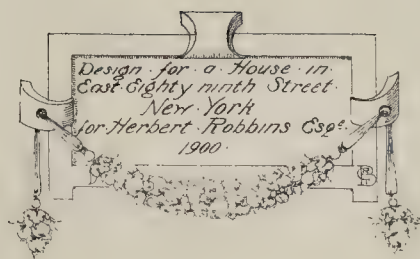 Design · for · a · House · in ·
East · Eighty ninth Street ·
New · York
for · Herbert Robbins Esqe.
1900 ·